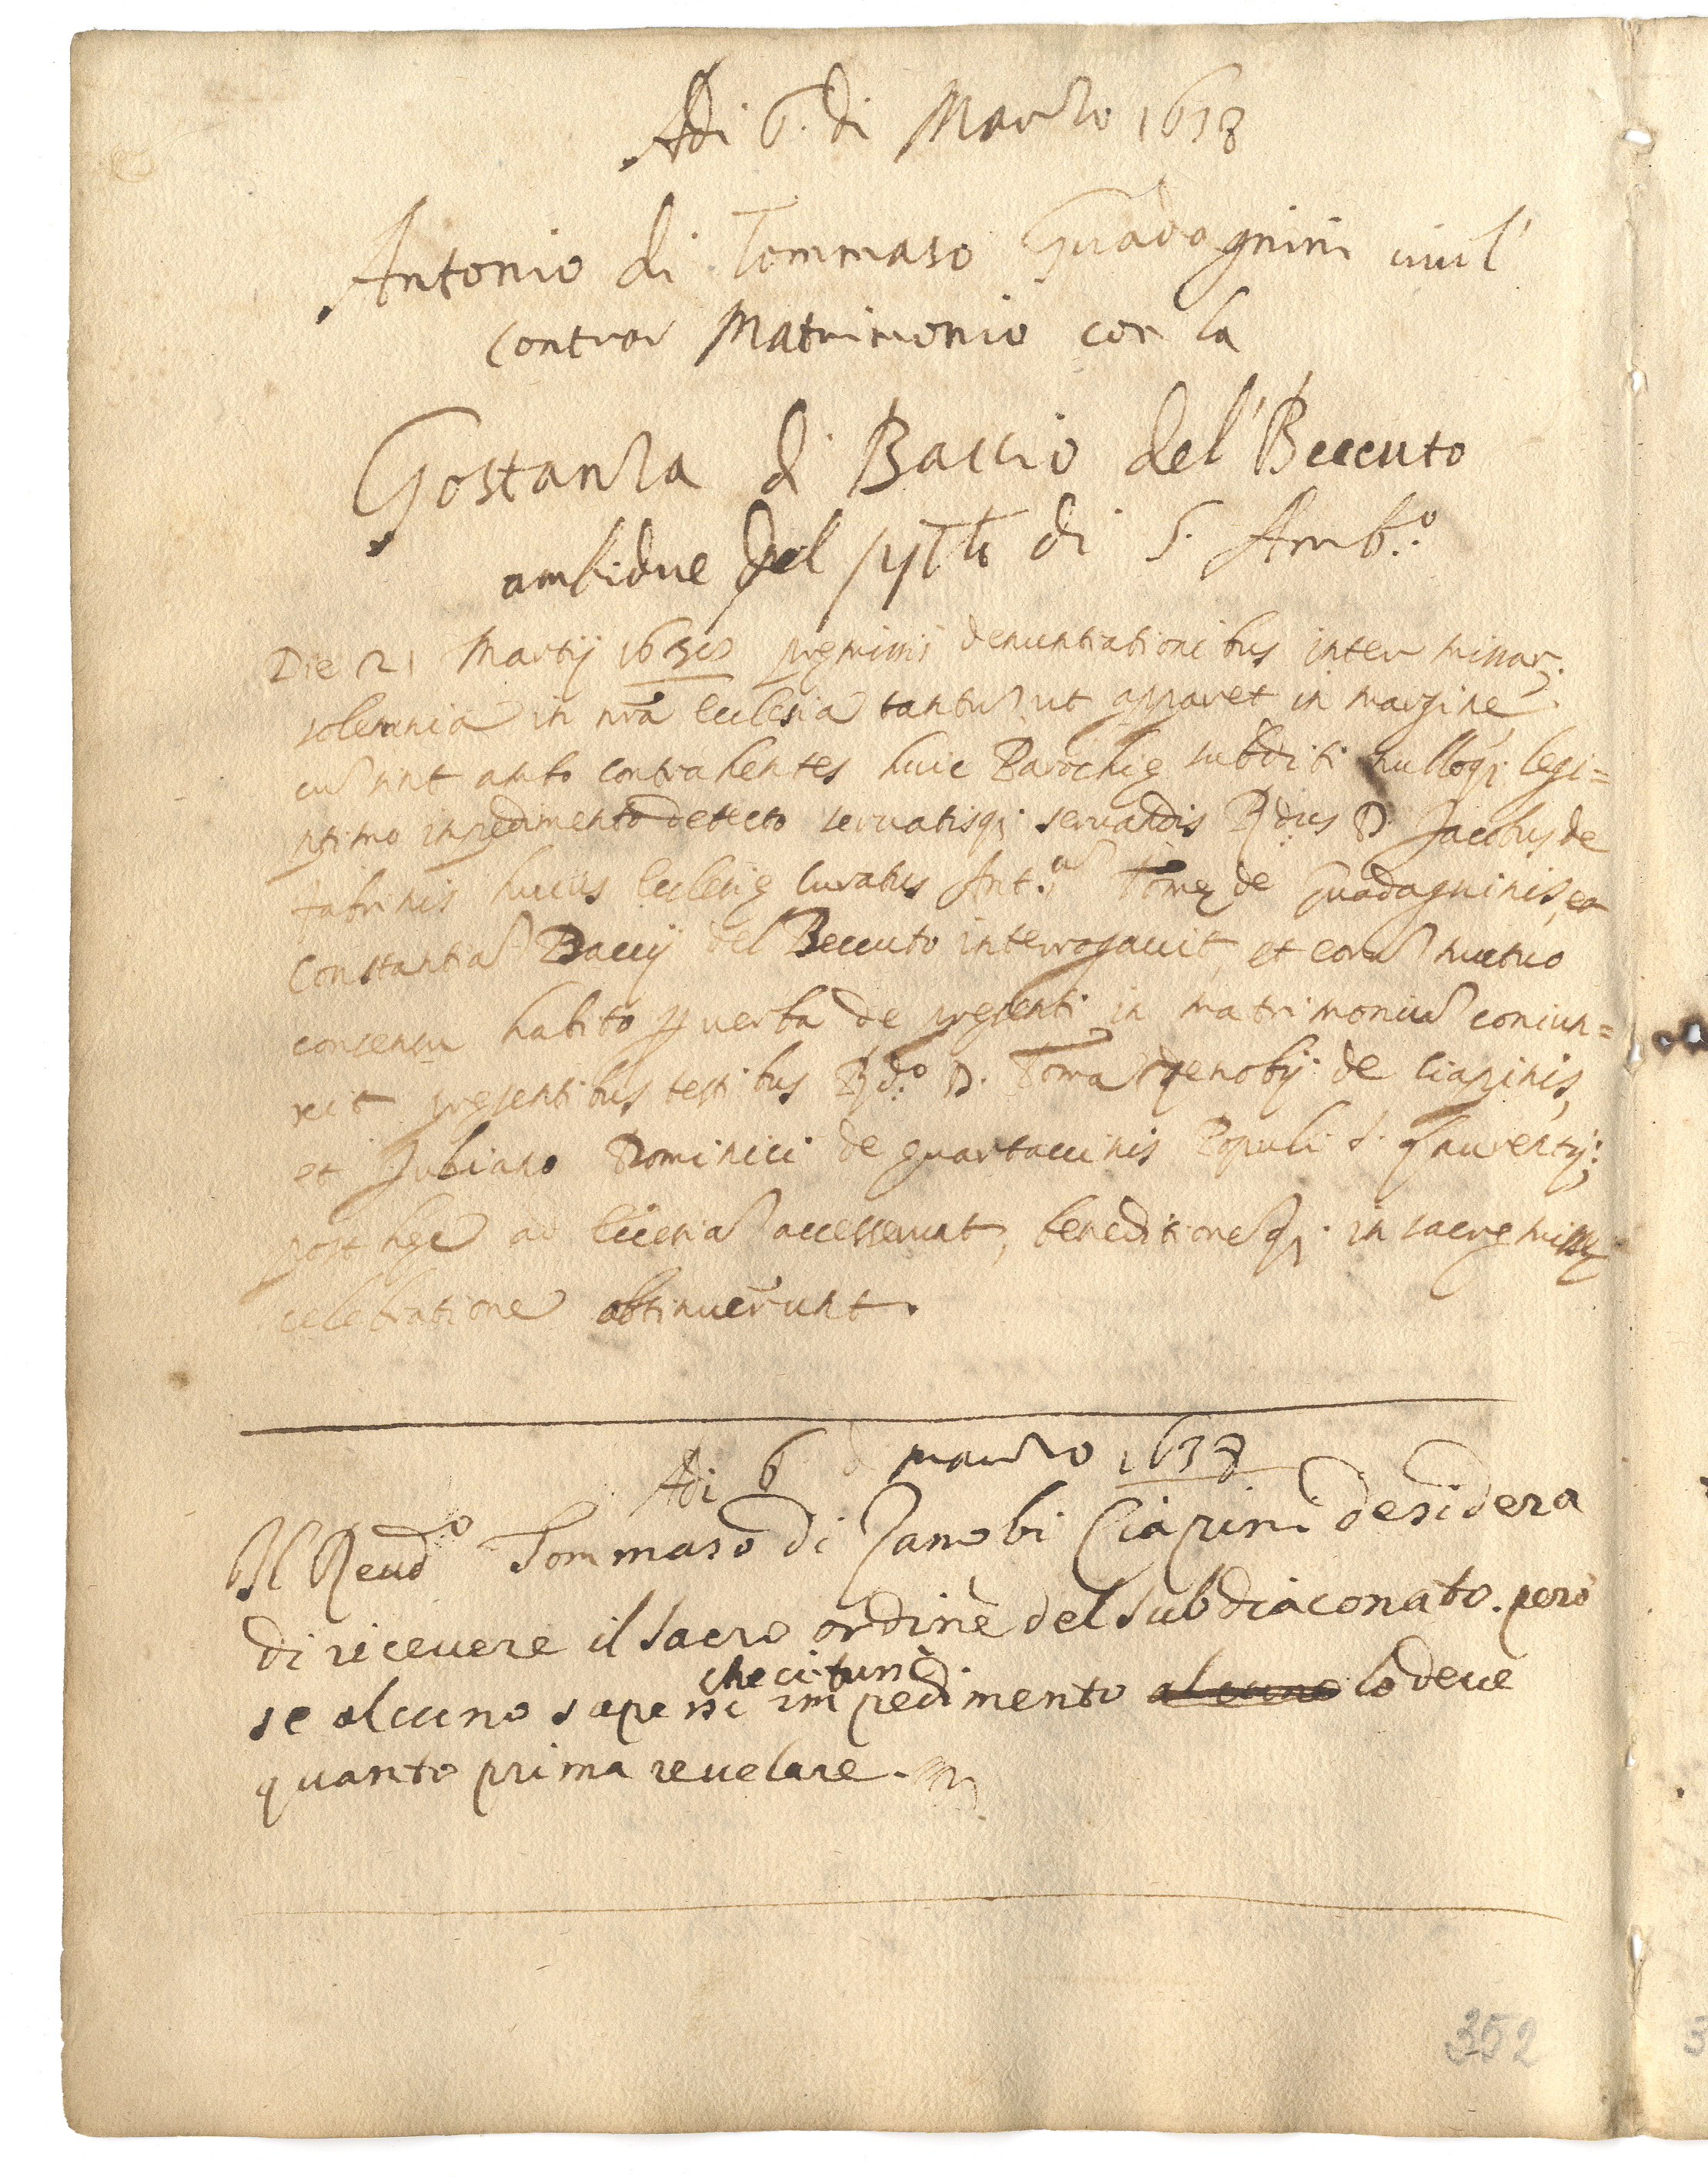 Adi 6. di Marzo 1638
Antonio di Tommaso Guadagnini vuol'
Contrar Matrimonio con la
Gostanza di Baccio del' Beccuto
ambidue del di S. Amb.º
Die 21 Martij 1638 premissis denuntiationibus inter missar.
solemnia in nrã Ecclesia tantũ ut apparet in margine
cũ sint ambo contrahentes huic Parochię subditi nulloq; legi=
ptimo inpedimento detecto servatisq; servandis R.dus D. Jacobus de
fabrinis huius Ecclesię Curatus Ant.ũ Tomę de Guadagninis, et
Constantiã Baccij del Beccuto interrogavit, et eorũ mutuo
consensu habito p verba de presenti in matrimoniũ coniun=
xit presentibus testibus R.do D. Toma Zenobij de Ciapinis,
et Juliano Dominici de guartaccinis Populi S. Laurentij;
post hęc ad Ecclesiã accesserunt, beneditionẽq; in sacrę missę
celebratione obtinuerunt.
Adi 6 d marzo 1638
Il Reud.º Tommaso di Zanobi Ciapini desidera
di ricevere il sacro ordine del subdiaconato. però
che ci fussi
se alcuno sapessi impedimento alcuno lo deve
quanto prima revelare.
352